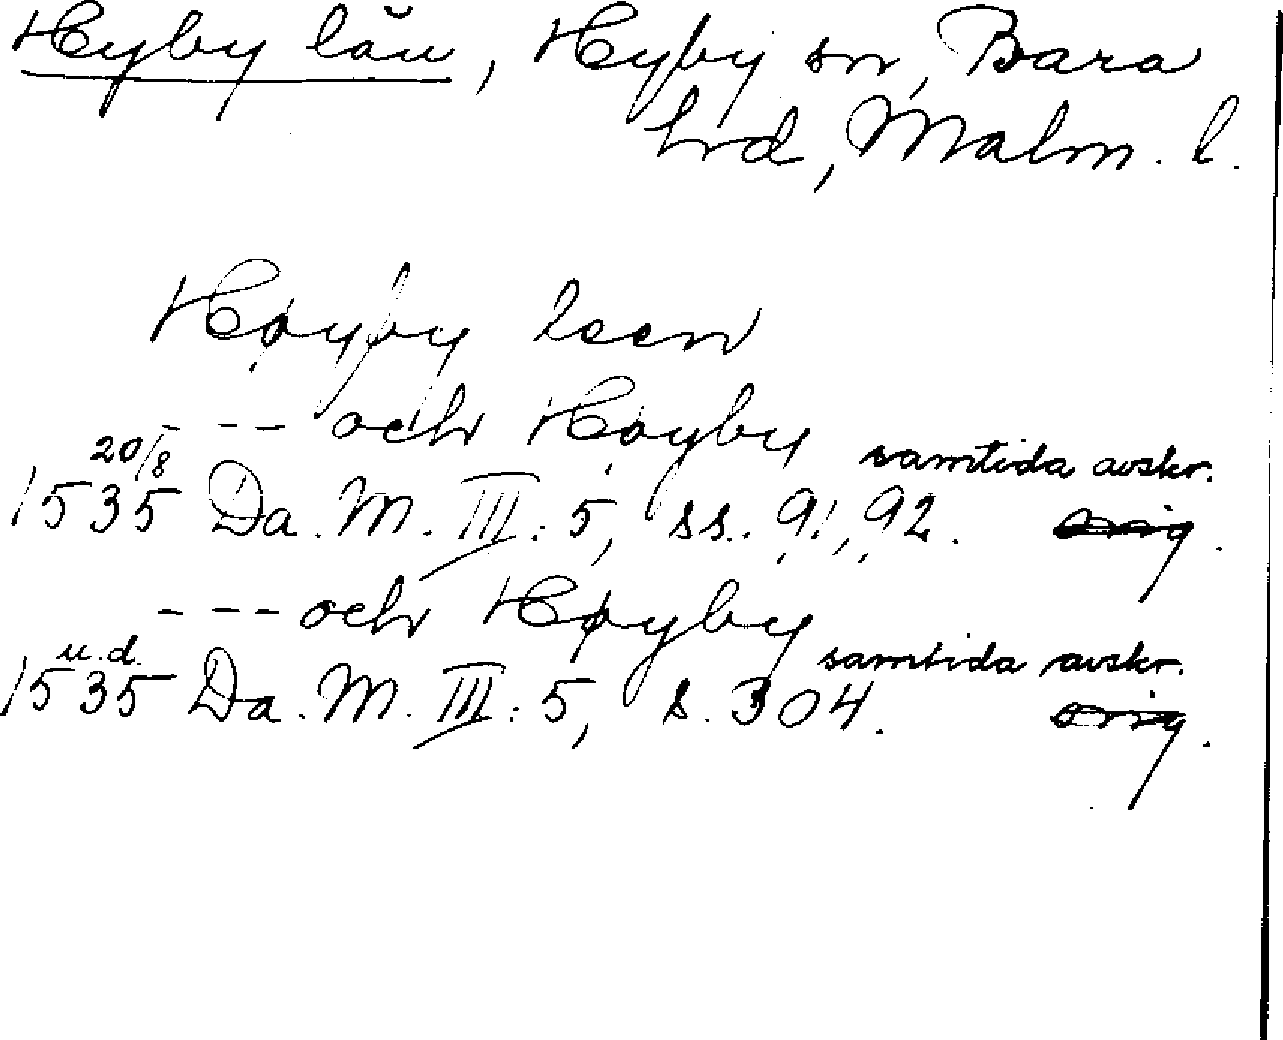 Hyby län, Hyby sn, Bara
hrd, Malm. l.
Høyby leen
- - - och Høyby
20/8 samtida avskr.
1535 Da. M. III: 5, ss. 91, 92. orig.
- - - och Høyby
u. d. samtida avskr.
1535 Da. M. III: 5, s. 304. orig.